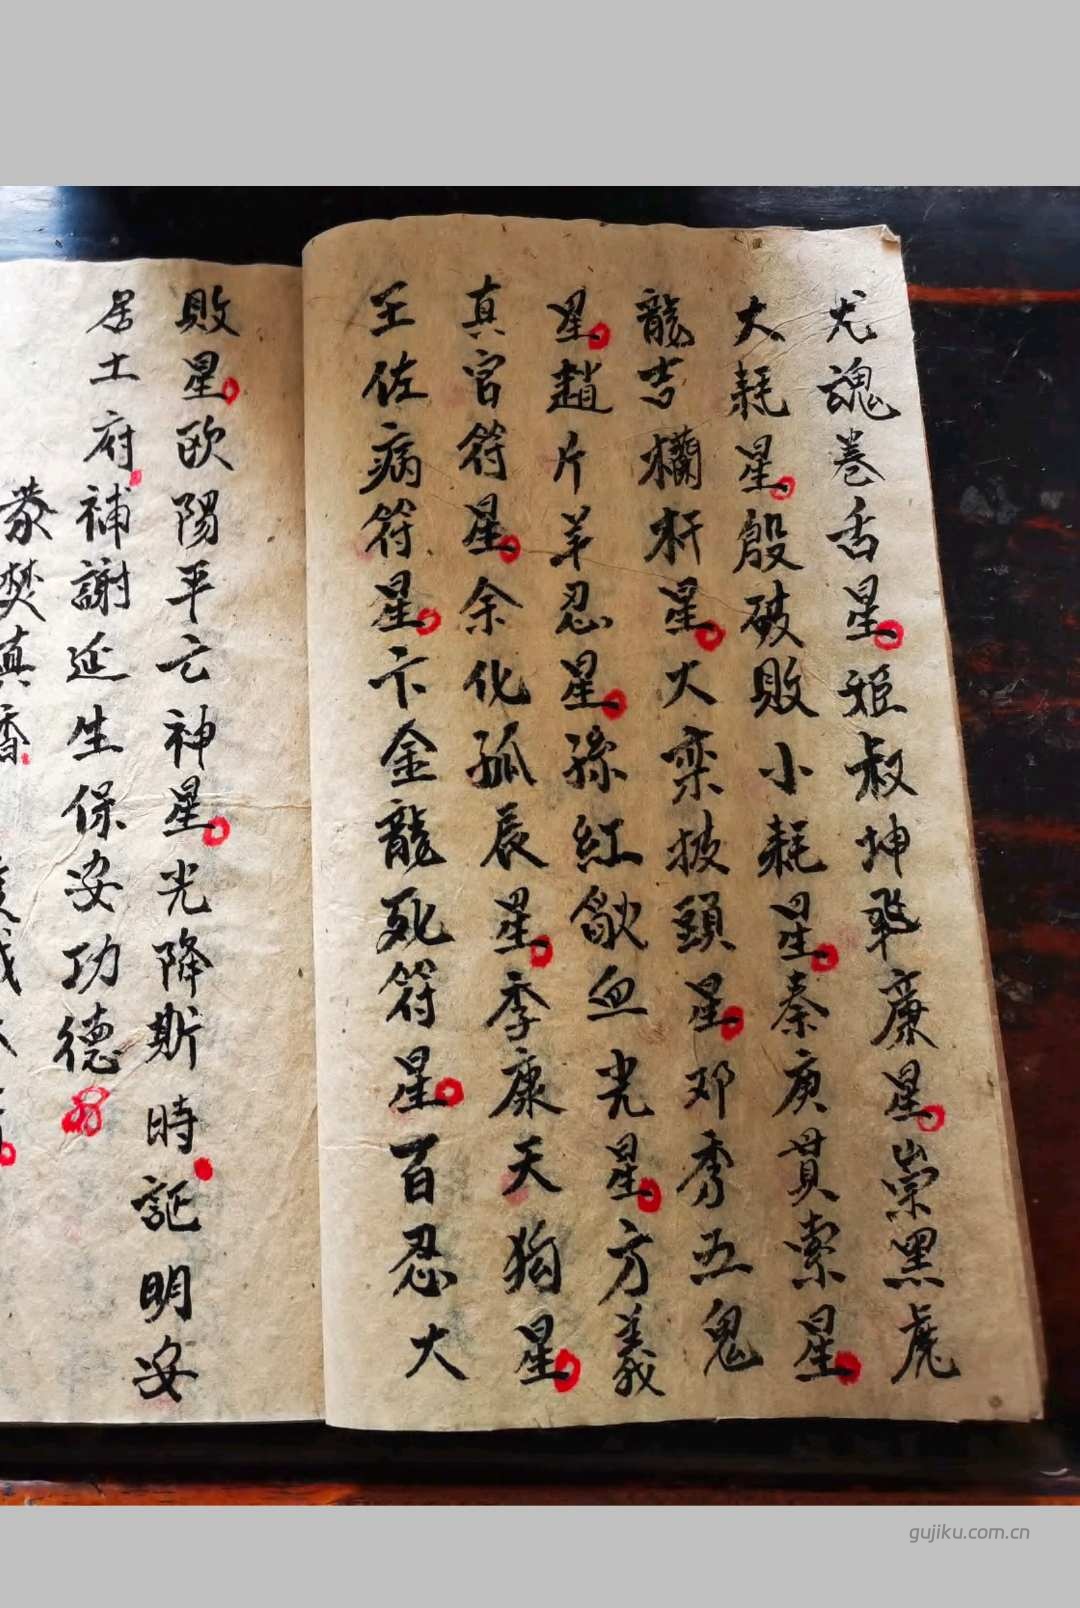 尤魂卷舌星姬叔坤飛廉星崇黑虎
大耗星殷破敗小耗星秦庚貫索星
龍吉欄杆星大栾披頭星邓秀五鬼
星趙片羊忍星孫紅歙血光星方義
真官符星余化孤辰星季康天狗星
王佐病符星卞金龍死符星百忍大
敗星欧陽平亡神星光降斯時誔明安
居土府補謝延生保安功德
焚真香
gujiku.com.cn